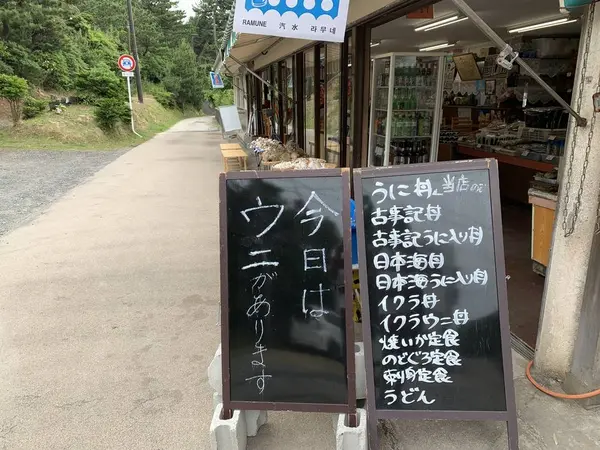 RAMUNE 汽水 라무네
今日は
ウニがあります
うに丼 当店の
古事記丼
古事記うに入り丼
日本海丼
日本海うに入り丼
イクラ丼
イクラウニ丼
焼いか定食
のどぐろ定食
刺身定食
うどん